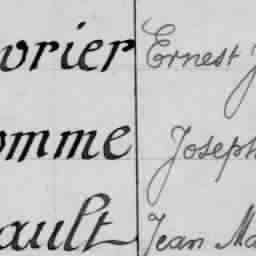 vrier Ernest J
omme Joseph
ault Jean Ma